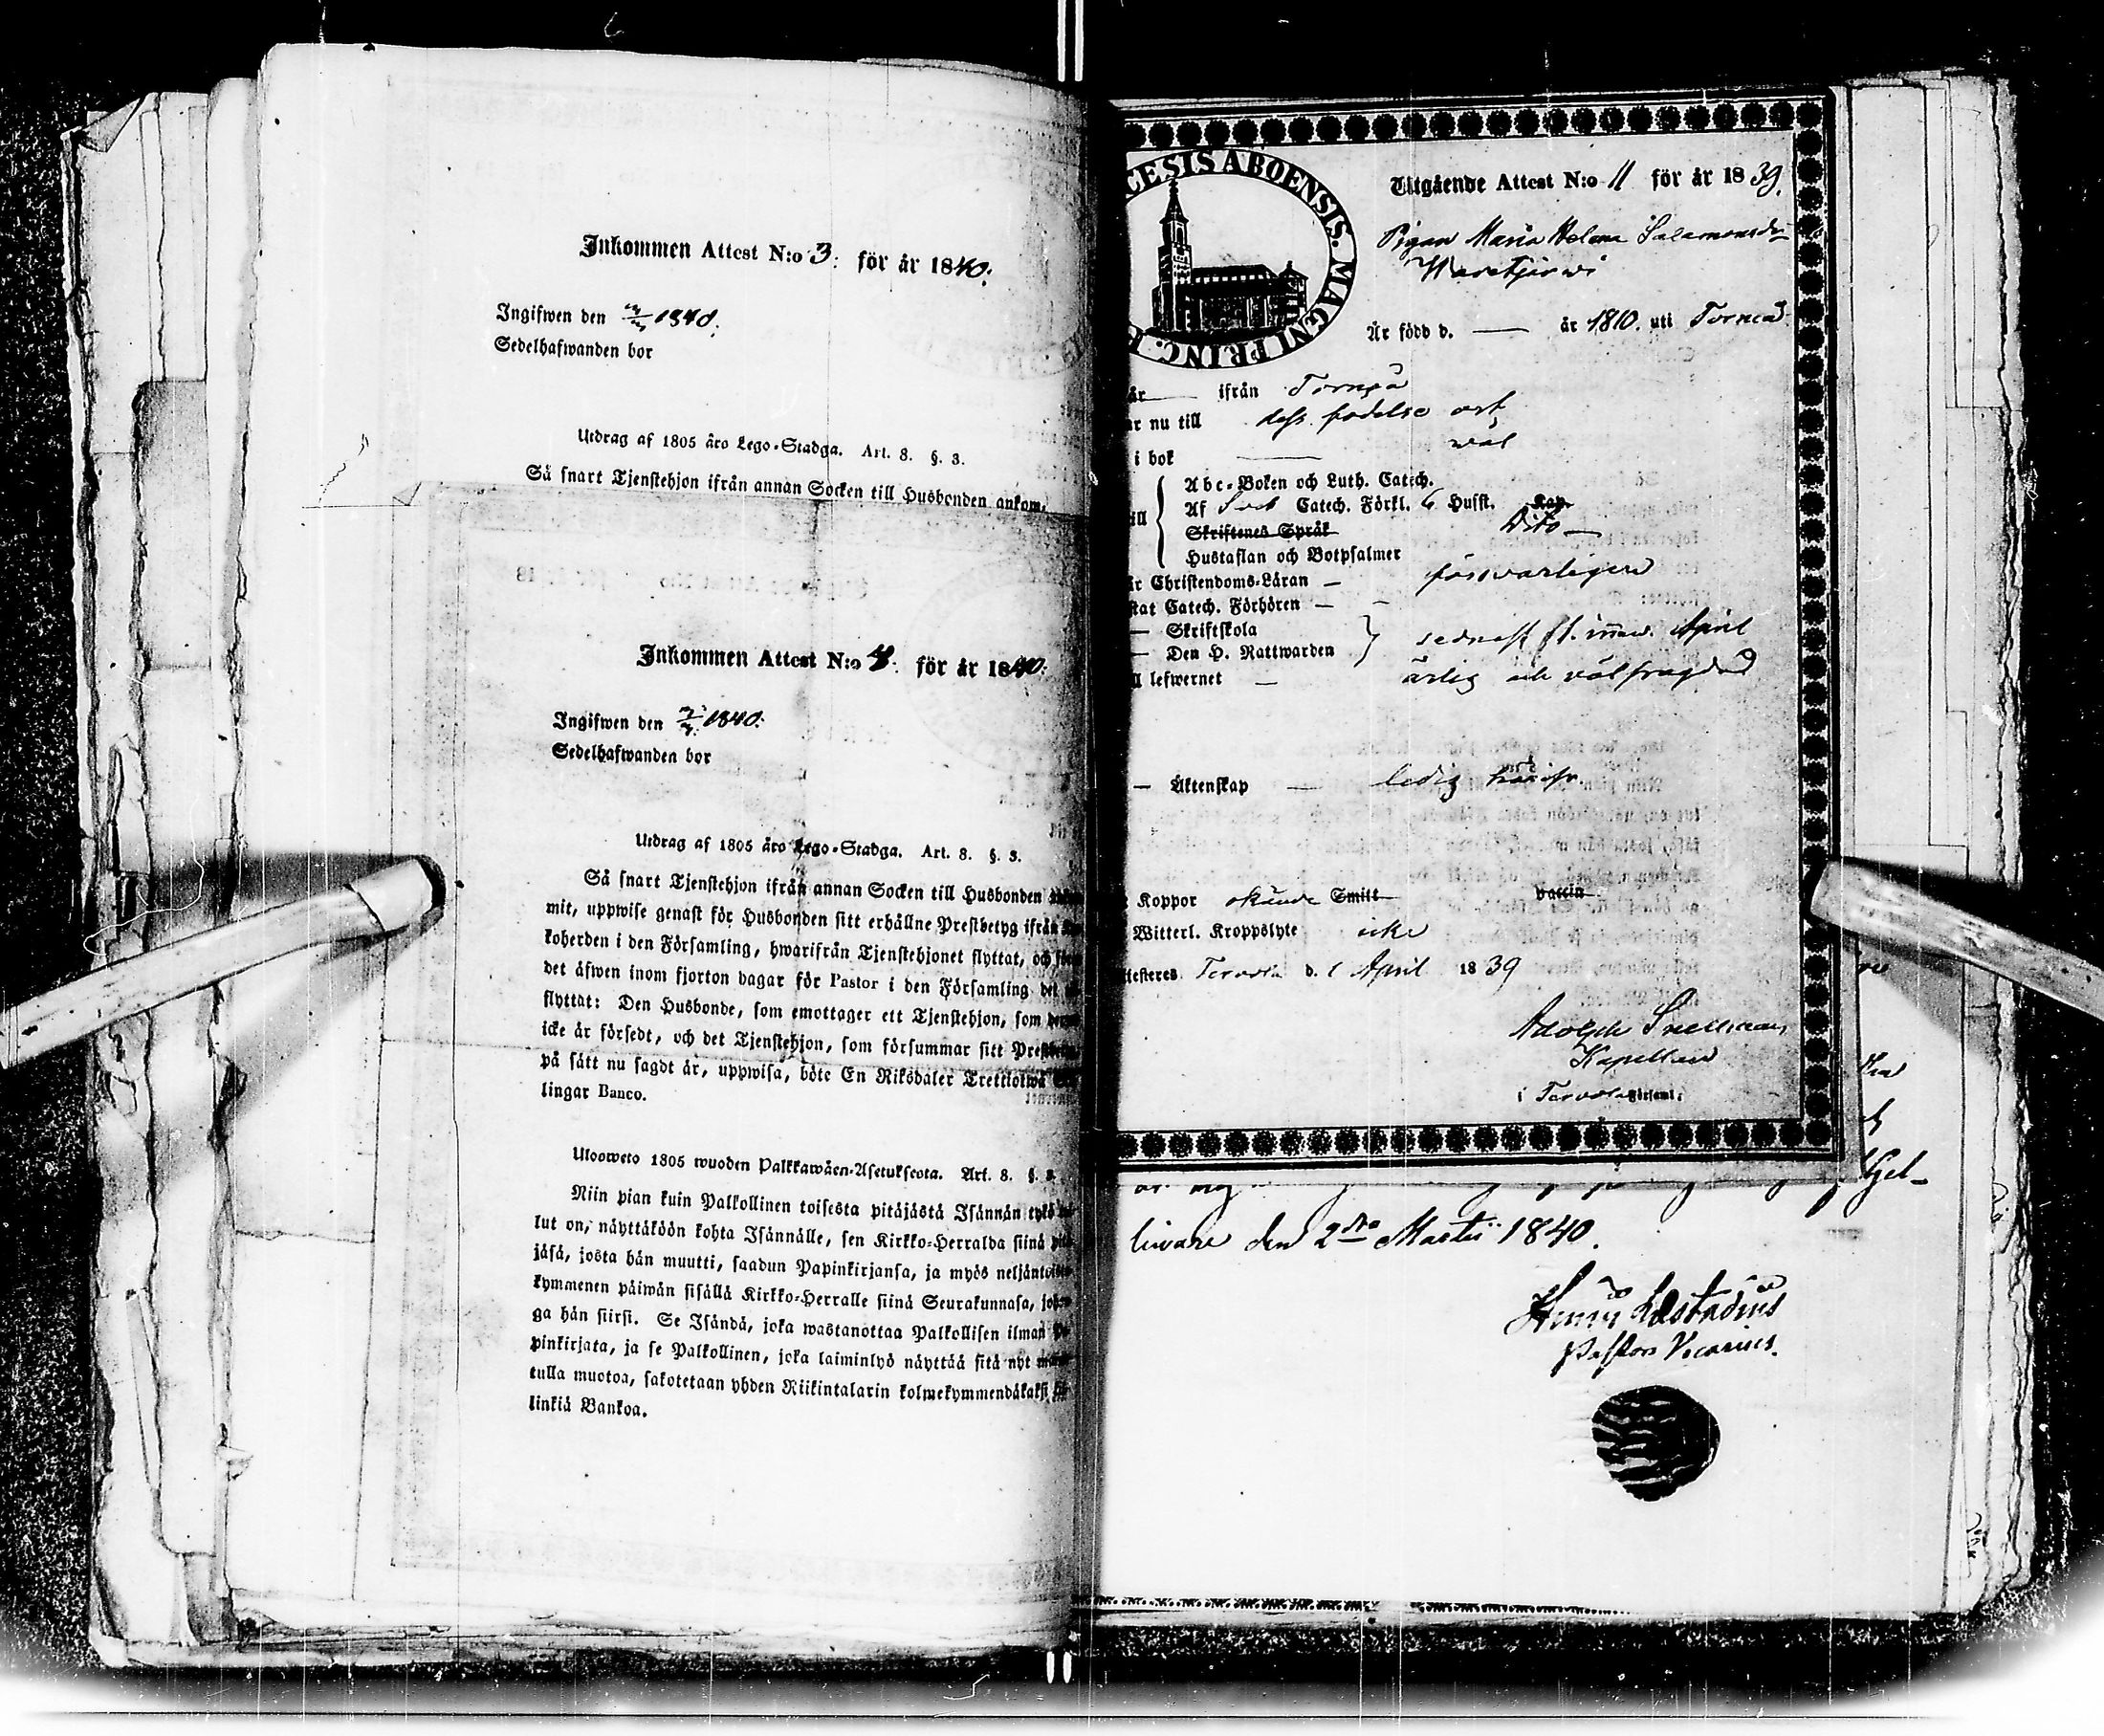 Inkommen Attest N:o 3. för år 1840.
Ingifwen den 1840.
Sedelhafwanden bor
Utdrag af 1805 åro Lego-Stadga. Art. 8. §. 3.
Så snart Tjenstehjon ifrån annan Socken till Husbonden ankom-
Inkommen Attest N:o 4. för år 1840.
Ingifwen den 1840.
Sedelhafwanden bor
Utdrag af 1805 åro Lego-Stadga. Art. 8. §. 3.
Så snart Tjenstehjon ifrån annan Socken till Husbonden
mit, uppwise genast för Husbonden sitt erhållne Prestbetyg ifrån
koherden i den Församling, hwarifrån Tjenstehjonet flyttat, och
det äfwen inom fjorton dagar för Pastor i den Församling det
flyttat: Den Husbonde, som emottager ett Tjenstehjon, som
icke är försedt, och det Tjenstehjon, som försummar sitt
på sätt nu sagdt är, uppwisa, böte En Riksdaler Trettiotwå
lingar Banco.
Ulooweto 1805 wuoden Palkkawäen-Asetuksesta. Art. 8. §. 3.
Niin pian kuin Palkollinen toisesta pitäjästä Isännän tykö
lut on, näyttäköön kohta Isännälle, sen Kirkko-Herralda siinä
jäsä, josta hän muutti, saadun Papinkirjansa, ja myös neljäntoista
kymmenen päiwän sisällä Kirkko-Herralle siinä Seurakunnasa,
ga hän siirsi. Se Isändä, joka wastanottaa Palkollisen ilman
pinkirjata, ja se Palkollinen, joka laiminlyö näyttää sitä nyt
tulla muotoa, sakotetaan yhden Riikintalarin kolmekymmendäkaksi
linkiä Bankoa.
CESIS ABOENSIS. MAGNI PRINC. F
Utgående Attest N:o 11 för år 1839.
Pigan Maria Helena Salamonsdr
Är född d. — år 1810. uti Torneå
är — ifrån Torneå
ar nu till dess födelse ort
i bok — wäl
Abc-Boken och Luth. Catech.
Af Catech. Förkl. 6 Husst. Kap.
Skriftenes Språk Dito —
Hustaflan och Botpsalmer
Christendoms-Läran — försvarligen
stat Catech. Förhören —
— Skriftskola
— Den H. Nattwarden sednast April
lefwernet — ärlig och välfrägdad
— Äktenskap — ledig
Koppor okända Smitt vaccin
Witterl. Kroppslyte icke
Tervola d. 1 April 1839
Adolph Snellman
Kapellan
i Tervola Församl.
Gel-
livare den 2dra Martii 1840.
Læstadius
Pastor Vicarius.